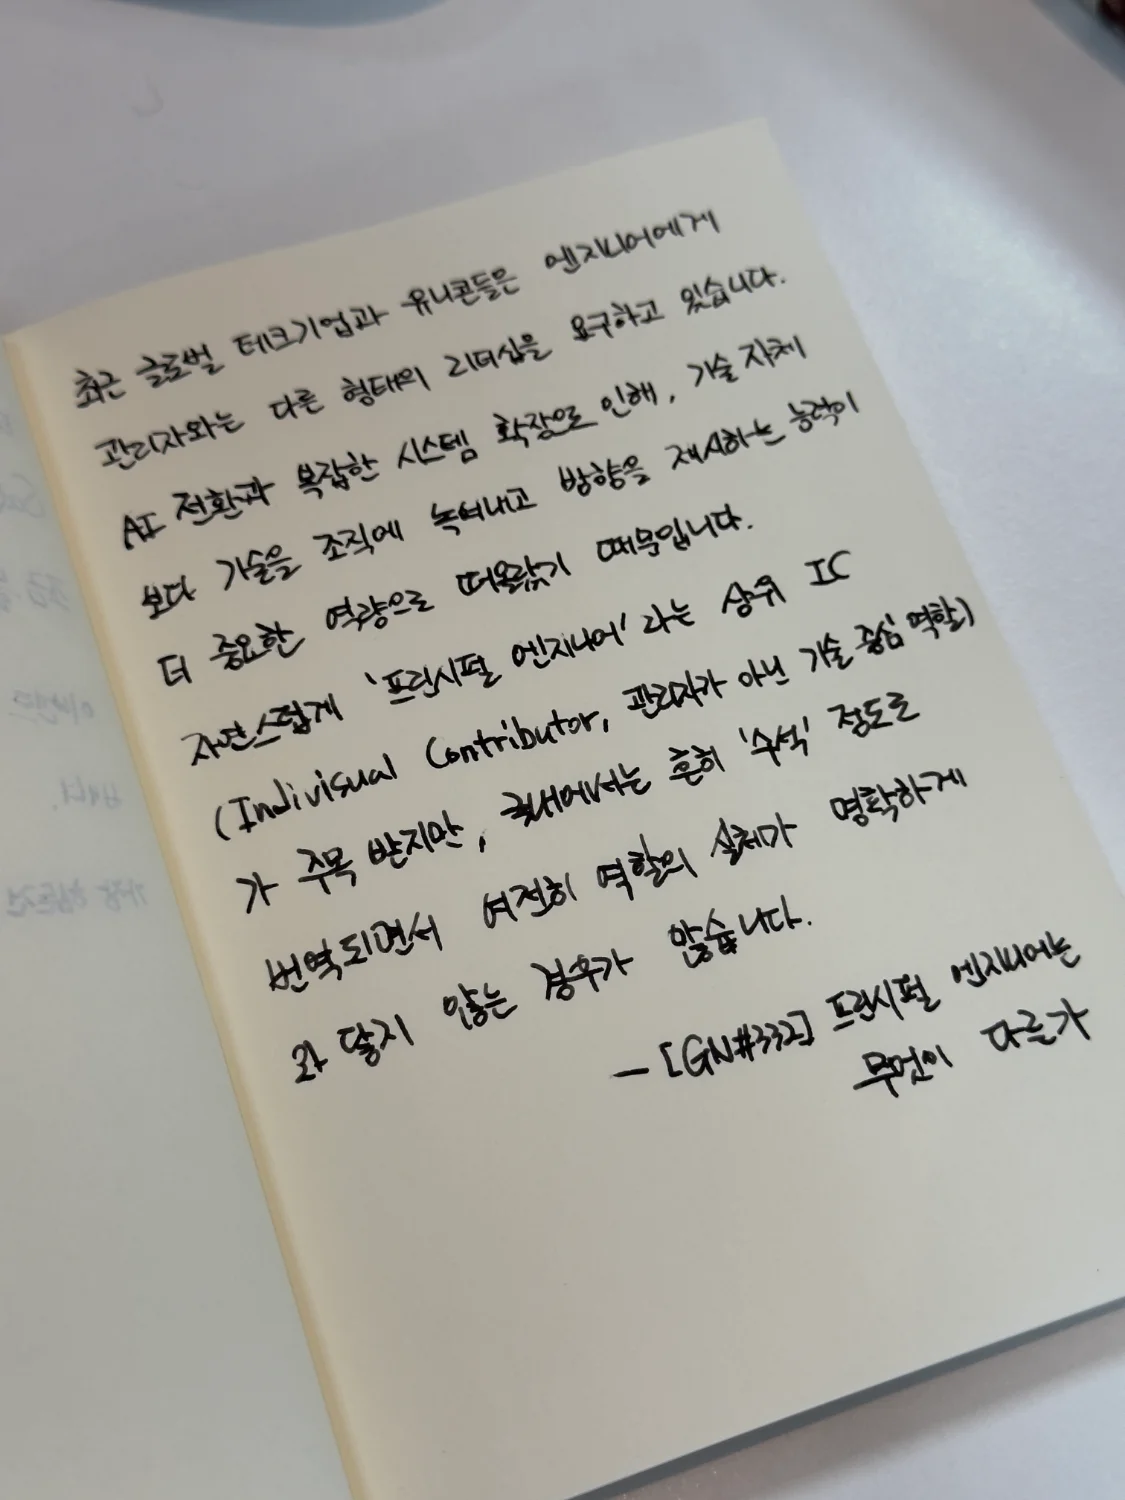 최근 글로벌 테크기업과 유니콘들은 엔지니어에게
관리자와는 다른 형태의 리더십을 요구하고 있습니다.
AI 전환과 복잡한 시스템 확장으로 인해, 기술 자체
보다 기술을 조직에 녹여내고 방향을 제시하는 능력이
더 중요한 역량으로 떠올랐기 때문입니다.
자연스럽게 '프린시펄 엔지니어'라는 상위 IC
(Indivisual Contributor, 관리자가 아닌 기술 중심 역할)
가 주목 받지만, 국내에서는 흔히 '수석' 정도로
번역되면서 여전히 역할의 실체가 명확하게
와 닿지 않는 경우가 많습니다.
— [GN#332] 프린시펄 엔지니어는
무엇이 다른가